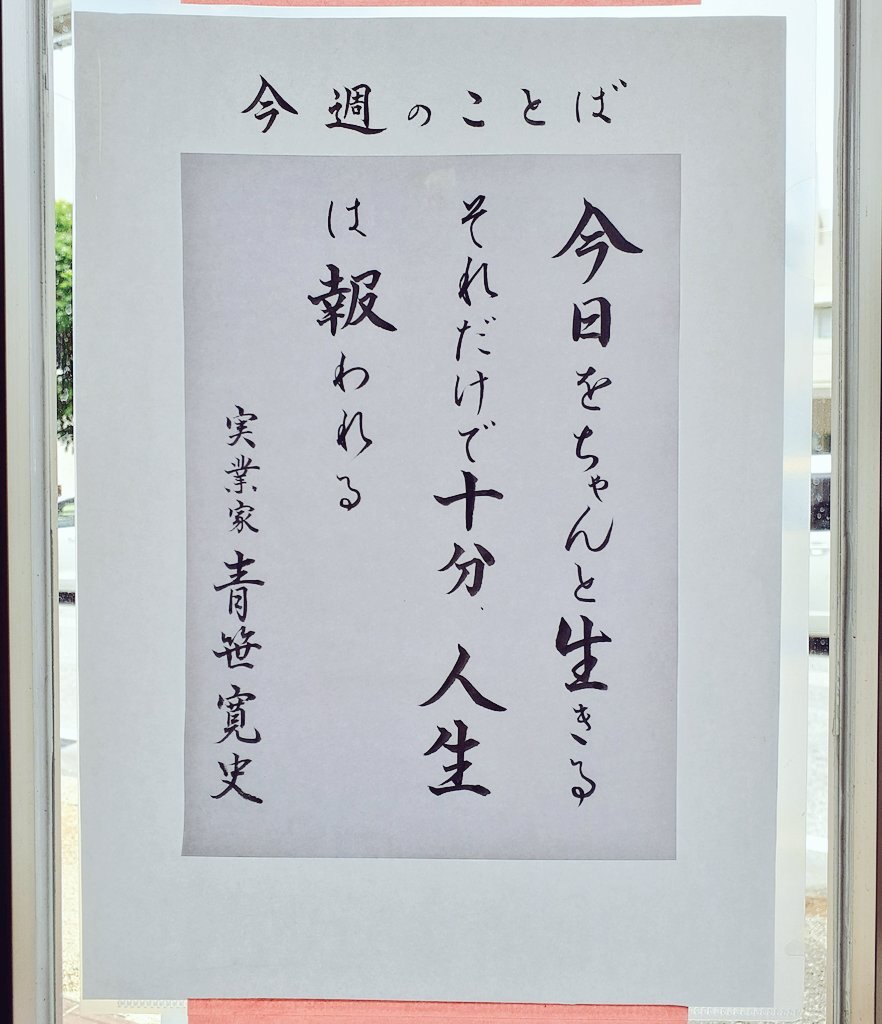 今週のことば
今日をちゃんと生きる
それだけで十分、人生
は報われる
実業家 青笹寛史